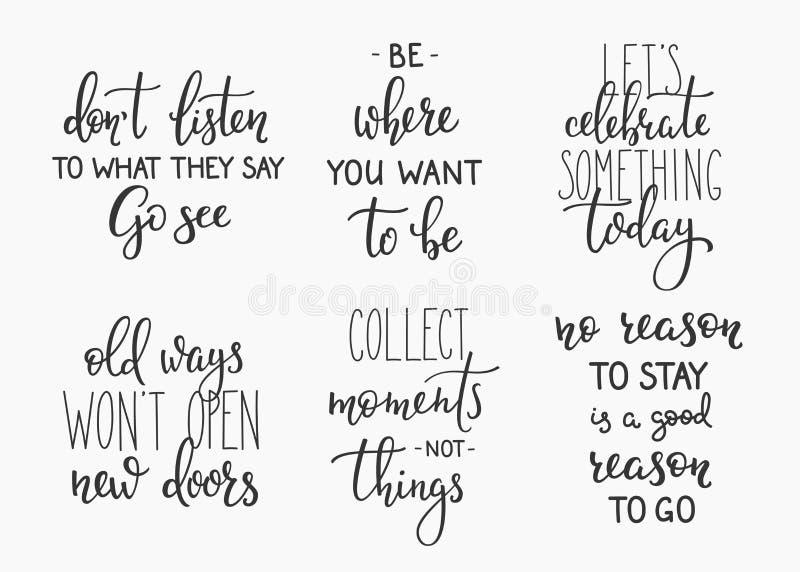 don't listen
TO WHAT THEY SAY
Go see
- BE -
where
YOU WANT
to be
LET'S
celebrate
SOMETHING
today
old ways
WON'T OPEN
new doors
COLLECT
moments
- NOT -
things
no reason
TO STAY
is a good
reason
TO GO
dreamstime